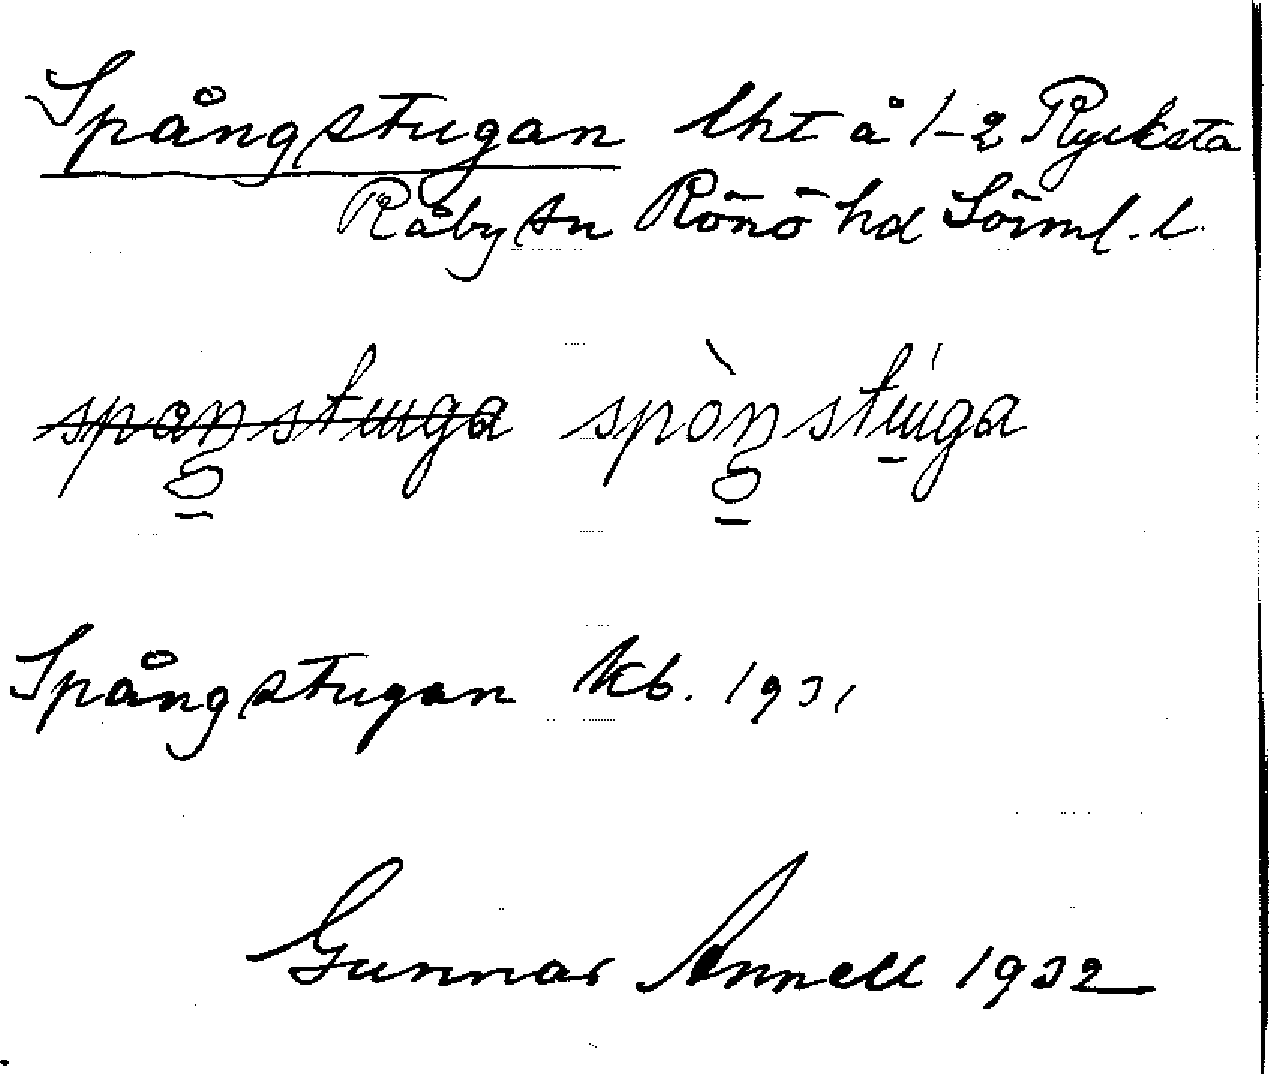 Spångstugan lht å 1-2 Rycksta
Råby sn Rönö hd Sörml. l.
spångstuga spòŋstúga
Spångstugan kb. 1931
Gunnar Annell 1932